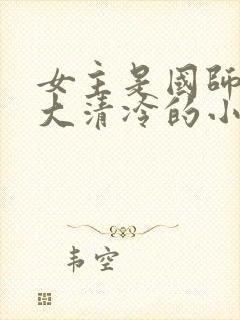 女主是國師
大清冷的小
韦空